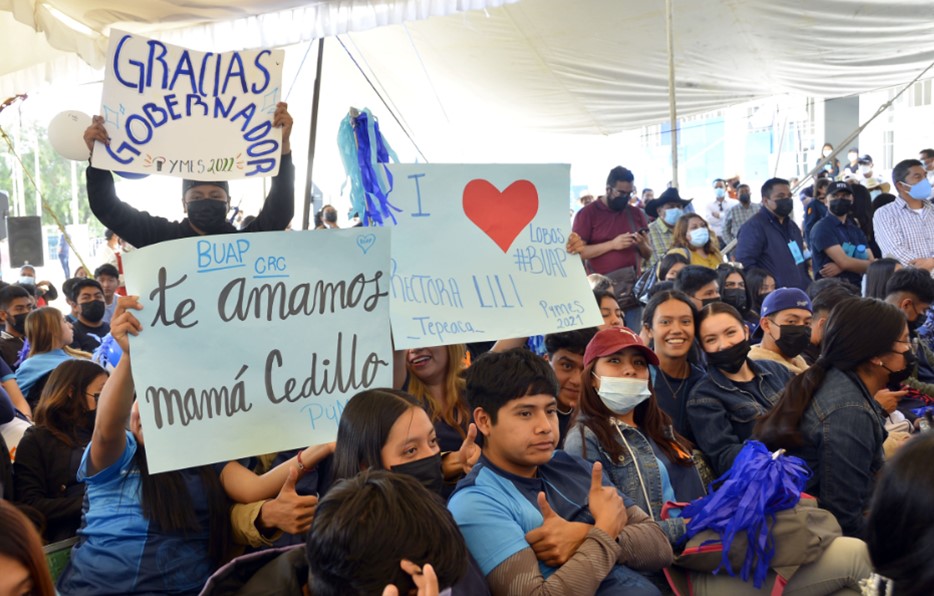 GRACIAS
GOBERNADOR
PYMES 2022
BUAP CRC
te amamos
mamá Cedillo
BUAP
I
LOBOS
#BUAP
RECTORA LILI
_Tepeaca_
Pymes
2021